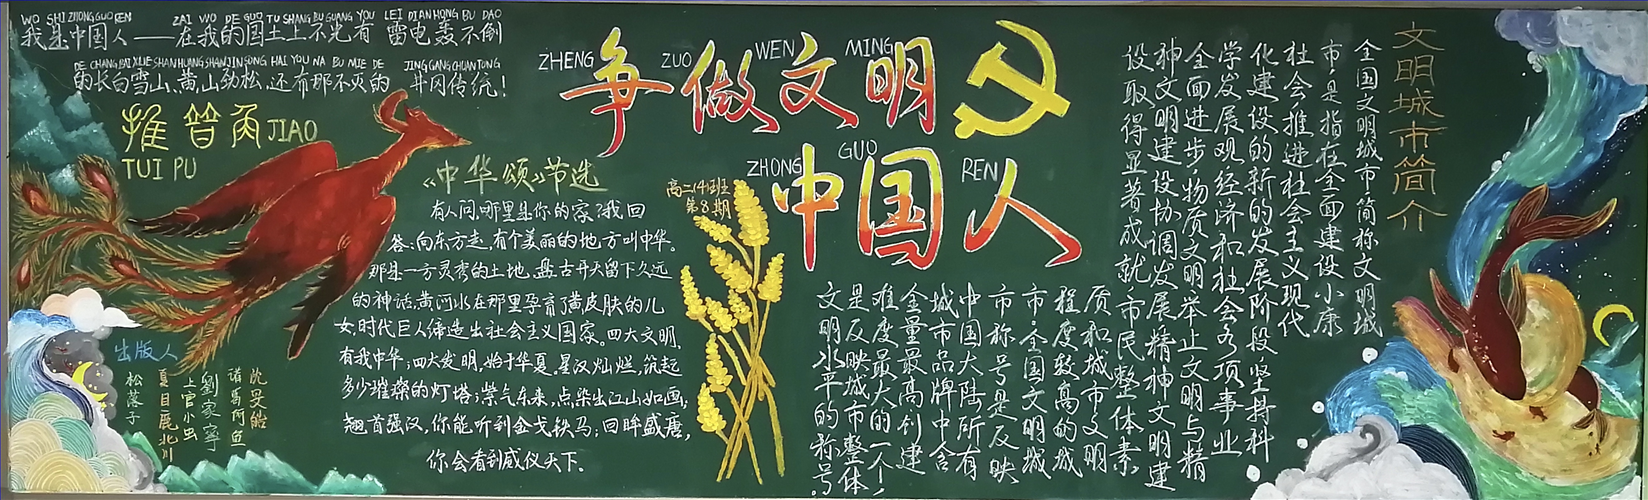 WO SHI ZHONG GUO REN ZAI WO DE GUO TU SHANG BU GUANG YOU LEI DIAN HONG BU DAO
我是中国人——在我的国土上不光有 雷电轰不倒
DE CHANG BAI XUE SHAN HUANG SHAN JIN SONG HAI YOU NA BU MIE DE JING GANG CHUAN TONG
的长白雪山、黄山劲松,还有那不灭的 井冈传统!
推普角 JIAO
TUI PU
ZHENG ZUO WEN MING
争做文明
ZHONG GUO REN
中国人
高二(4)班
第8期
《中华颂》节选
有人问,哪里是你的家?我回
答:向东方走,有个美丽的地方叫中华。
那是一方灵秀的土地,盘古开天留下久远
的神话,黄河水在那里孕育了黄皮肤的儿
女,时代巨人缔造出社会主义国家。四大文明,
有我中华;四大发明,始于华夏。星汉灿烂,筑起
多少璀璨的灯塔;紫气东来,点染出江山如画;
翘首强汉,你能听到金戈铁马;回眸盛唐,
你会看到威仪天下。
出版人
诸葛阿鱼
劉家寧
上官小虫
夏目鹿北川
松落子
文明城市简介
全国文明城市简称文明城
市,是指在全面建设小康
社会,推进社会主义现代
化建设的新的发展阶段,坚持科
学发展观,经济和社会各项事业
全面进步,物质文明举止文明与精
神文明建设协调发展,精神文明建
设取得显著成就,市民整体素
质和城市文明
程度较高的城
市。全国文明城
市称号是反映
中国大陆所有
城市品牌中含
金量最高创建
难度最大的一个,
是反映城市整体
文明水平的称号。